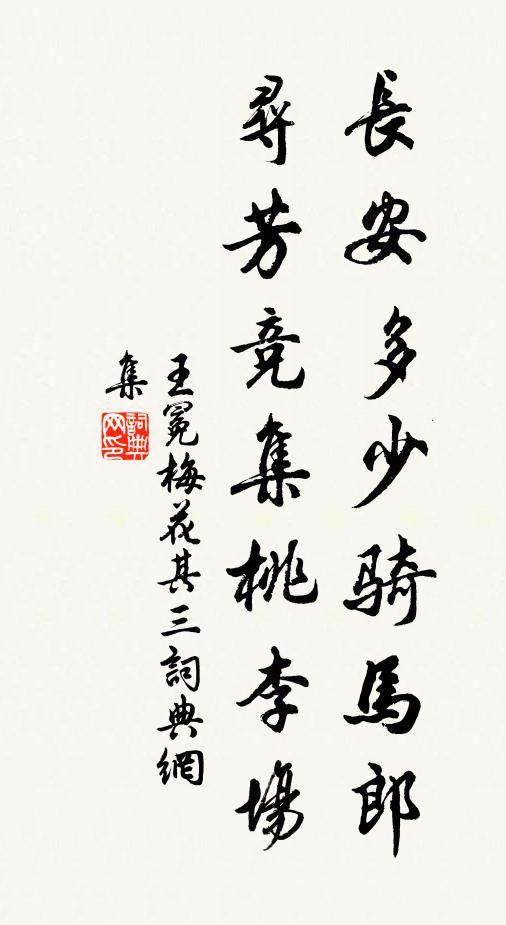 長安多少騎馬郎
尋芳竞集桃李場
王冕梅花其三詞典網
集
詞典网印